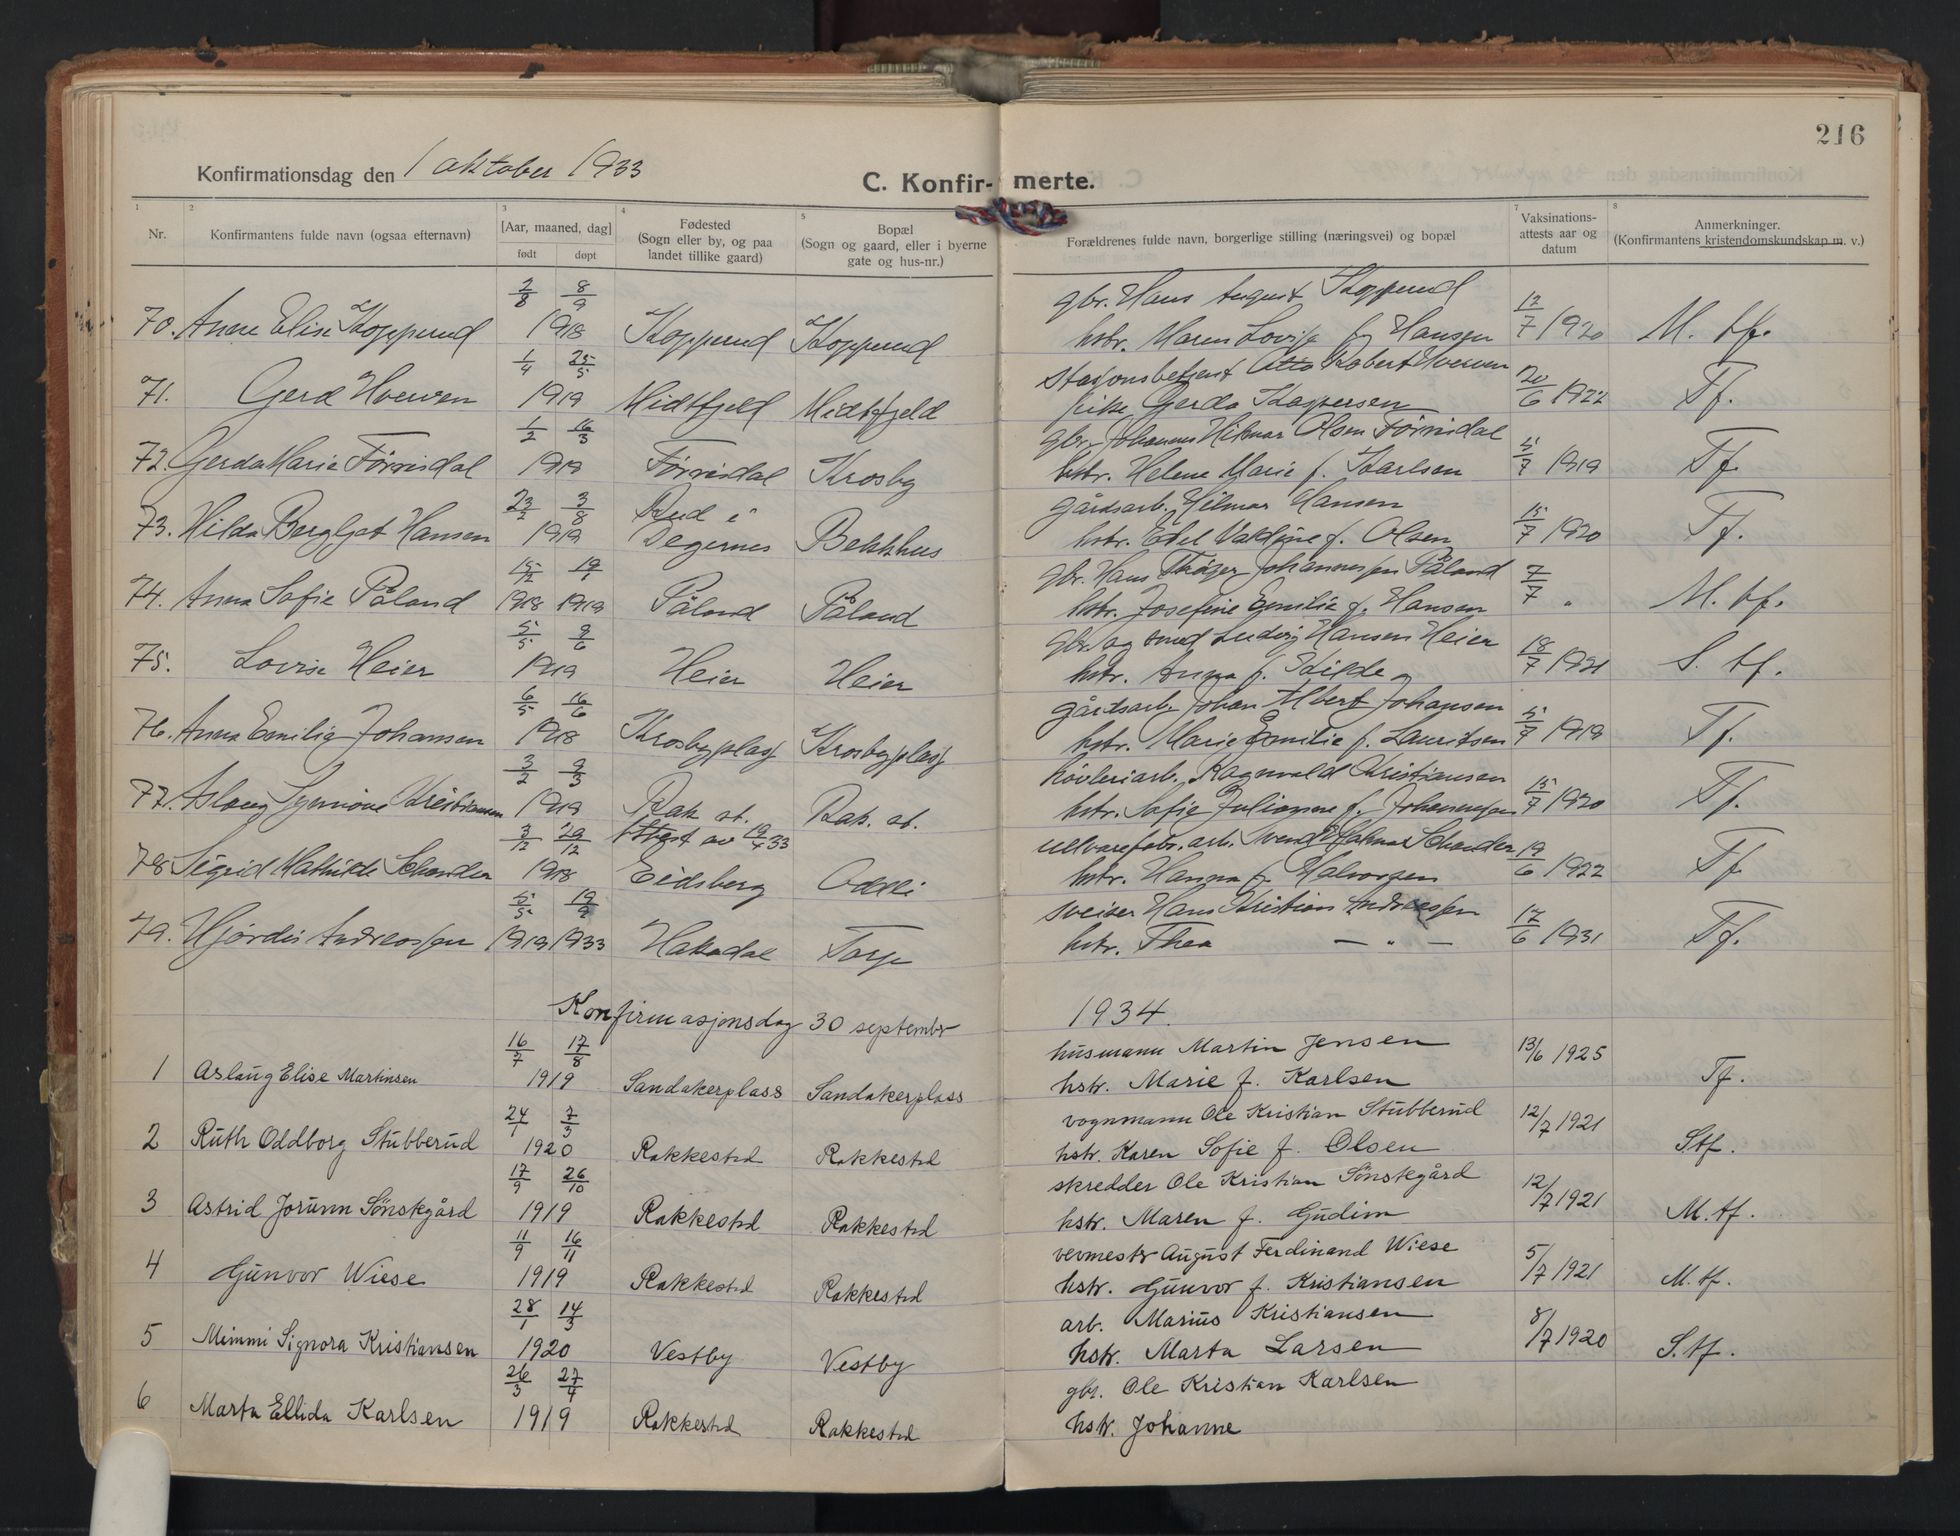 216
Konfirmationsdag den 1 oktober 1933
C. Konfir- merte.
1 2 3 4 5 7 8
Nr.
Konfirmantens fulde navn (ogsaa efternavn)
[Aar, maaned, dag]
født døpt
Fødested
(Sogn eller by, og paa
landet tillike gaard)
Bopæl
(Sogn og gaard, eller i byerne
gate og hus-nr.)
Forældrenes fulde navn, borgerlige stilling (næringsvei) og bopæl
Vaksinations-
attests aar og
datum
Anmerkninger.
(Konfirmantens kristendomskundskap m. v.)
2/8 8/9 gbr. Hans August Kopperud
70. Anne Elise Kopperud 1918 Kopperud Kopperud hstr. Maren Lovise f. Hansen 12/7 1920 M. tf.
1/4 25/5 Stasjonsbetjent Otto Robert Hverven
71. Gerd Hverven 1919 Midtfjeld Midtfjeld pike Gerda Kaspersen 20/6 1922 Tf.
1/2 16/3 gbr. Johannes Hilmar Olsen Förrisdal
72. Gerda Marie Förrisdal 1919 Förrisdal Krosby hstr. Helene Marie f. Karlsen 5/7 1919 Tf.
23/2 3/8 Rud i gårdsarb. Hilmar Hansen
73. Hilda Bergljot Hansen 1919 Degernes Bekkhus hstr. Edel Valdine f. Olsen 15/7 1920 Tf.
15/12 19/1 gbr. Hans Thäger Johannessen Påland
74. Anna Sofie Påland 1918 1919 Påland Påland hstr. Josefine Emilie f. Hansen 7/7 " M. tf.
5/5 9/6 gbr. og smed Ludvig Hansen Heier
75. Lovise Heier 1919 Heier Heier hstr. Anna f. Kilde 18/7 1921 S. tf.
6/5 16/6 gårdsarb. Johan Albert Johansen
76. Anna Emilie Johansen 1918 Krosbyplass Krosbyplass hstr. Marie Emilie f. Lauritsen 5/7 1919 Tf.
3/2 9/3 hövleriarb. Ragnvald Kristiansen
77. Aslaug Synnöve Kristiansen 1919 Rak. st. Rak. st. hstr. Sofie Julianne f. Johannessen 15/7 1920 Tf.
3/12 29/12 Attest av 19/4 33 ullvarefabr. arb. Svend Hjalmar Schander
78. Sigrid Mathilde Schander 1918 Eidsberg Oddli hstr. Hanna f. Halvorsen 19/6 1922 Tf.
5/5 19/9 sveiser Hans Kristian Andreassen
79. Hjördis Andreassen 1919 1933 Hakadal Torp hstr. Thea — " — 17/6 1931 Tf.
Konfirmasjonsdag 30 septembr 1934.
16/7 17/8 husmann Martin Jensen 13/6 1925
1 Aslaug Elise Martinsen 1919 Sandakerplass Sandakerplass hstr. Marie f. Karlsen Tf.
24/1 7/3 vognmann Ole Kristian Stubberud 12/7 1921
2 Ruth Oddborg Stubberud 1920 Rakkestad Rakkestad hstr. Karen Sofie f. Olsen Stf.
17/9 26/10 skredder Ole Kristian Sønskegård 12/7 1921
3 Astrid Jorunn Sønskegård 1919 Rakkestad Rakkestad hstr. Maren f. Gudim M. tf.
11/9 16/11 vevmestr August Ferdinand Wiese 5/7 1921
4 Gunvor Wiese 1919 Rakkestad Rakkestad hstr. Gunvor f. Kristiansen M. tf.
28/1 14/3 arb. Marius Kristiansen 8/7 1920
5 Mimmi Signora Kristiansen 1920 Vestby Vestby hstr. Marta Larsen S. tf.
26/3 27/4 gbr. Ole Kristian Karlsen
6 Marta Ellida Karlsen 1919 Rakkestad Rakkestad hstr. Johanne